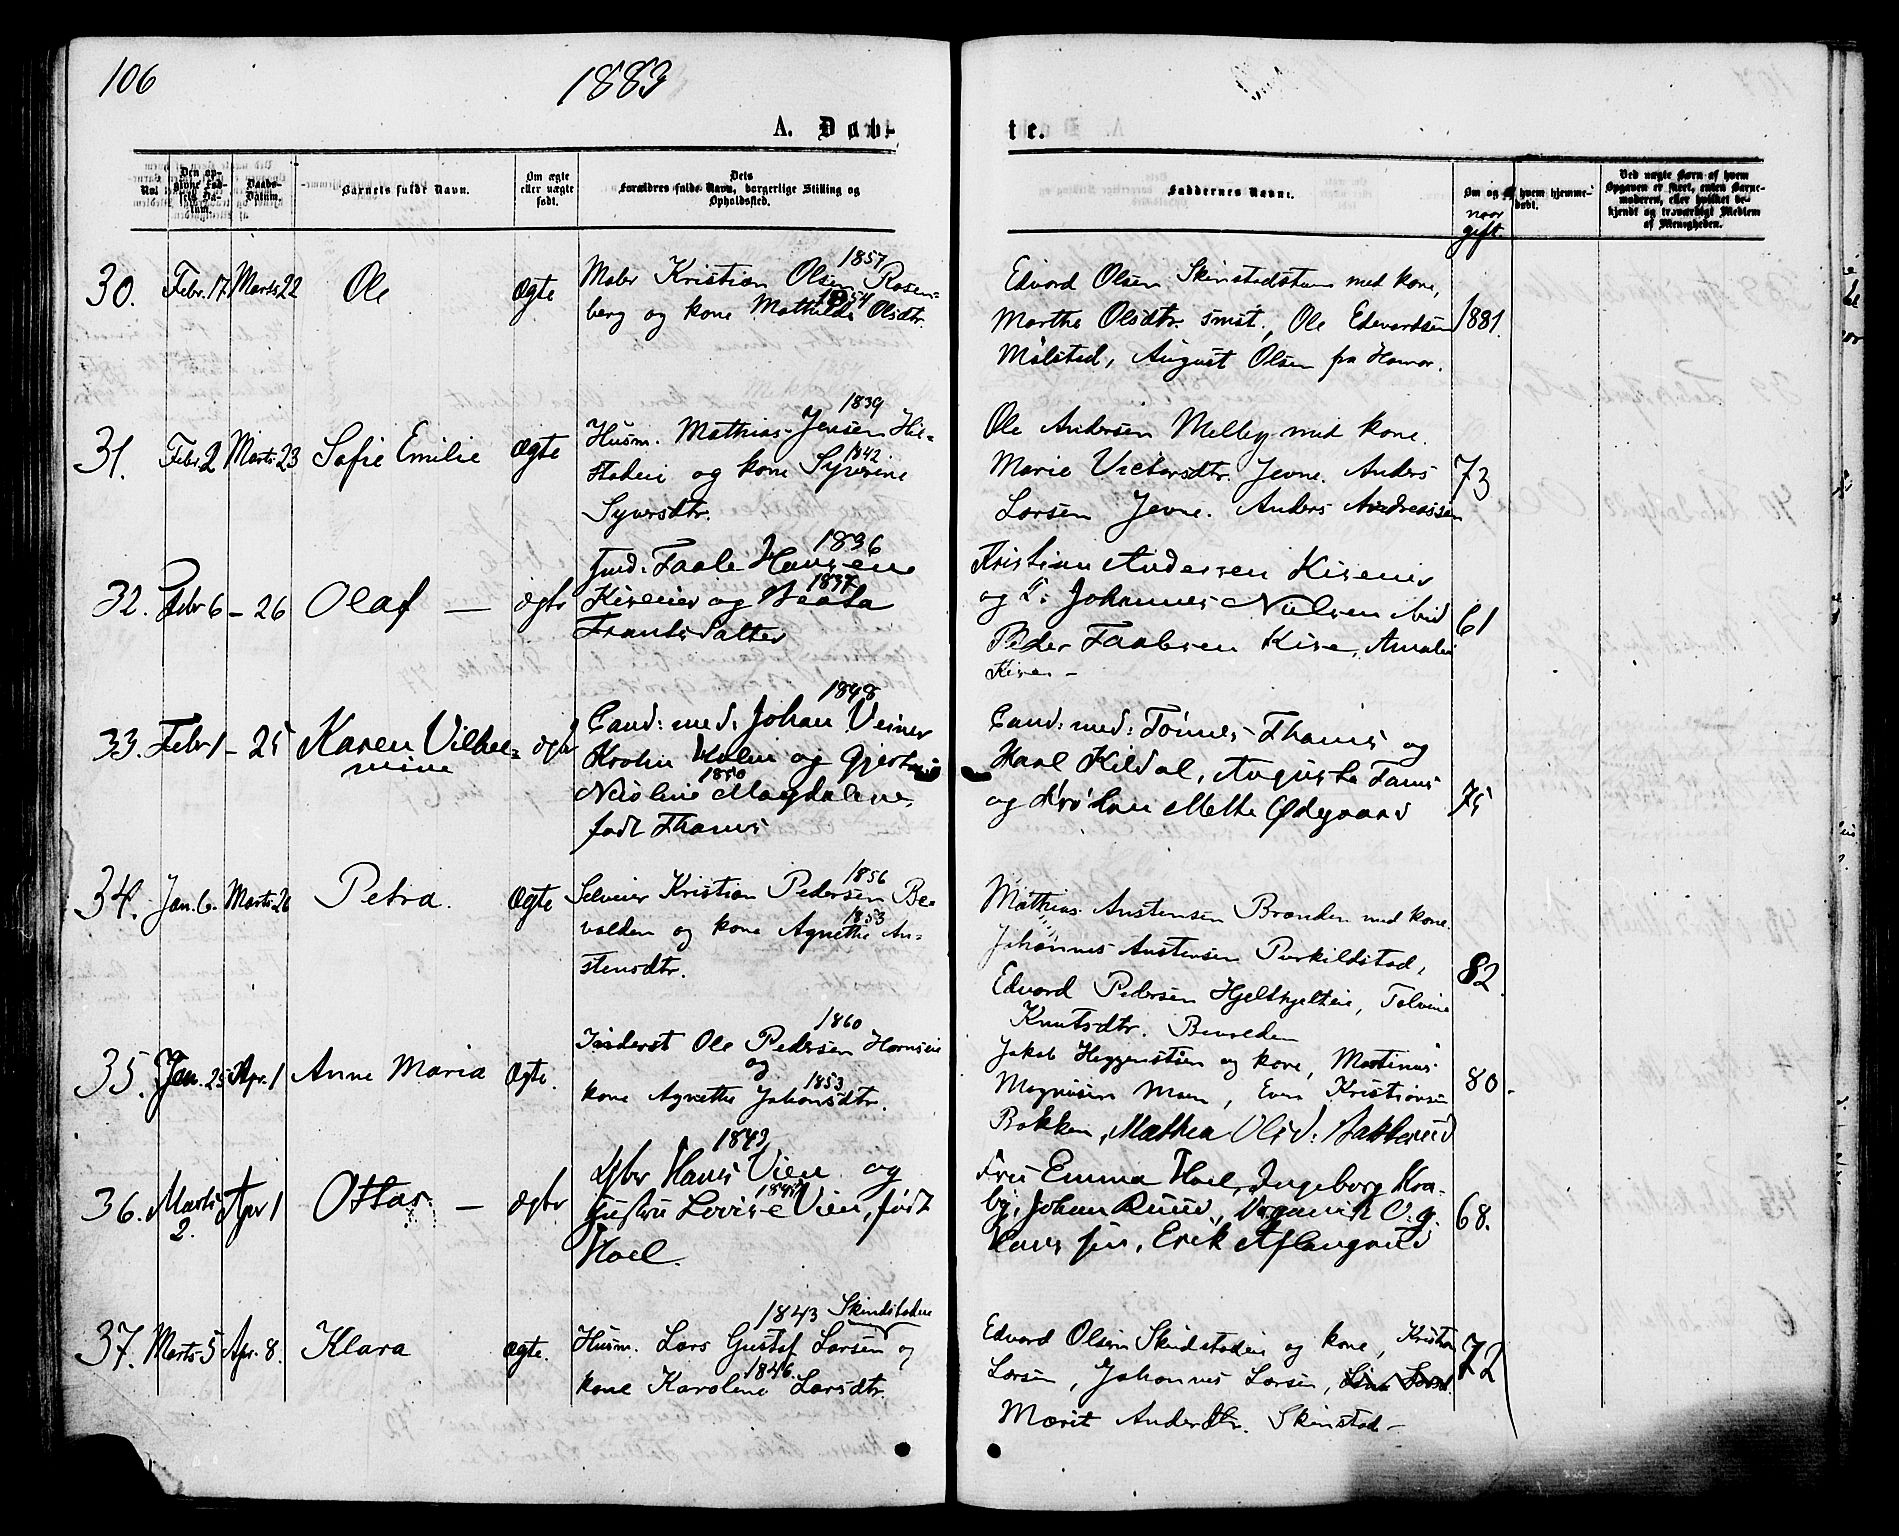 106
1883
A. Døb-
te.
No.
Den opgivne Fødsels Datum.
Daabs-Datum.
Barnets fulde Navn.
Om ægte eller uægte født.
Dets Forældres fulde Navn, borgerlige Stilling og Opholdssted.
Faddernes Navne.
Om og af hvem hjemmedøbt.
naar gift.
Ved uægte Børn af hvem Opgaven er skeet, enten Barnemoderen, eller hvilket bekjendt og troværdigt Medlem af Menigheden.
30. Febr. 17 Marts 22 Ole Ægte
Maler Kristian Olsen 1857 Rosen-
berg og kone Mathilde 1854 Olsdtr.
Edvard Olsen Skinstadstuen med kone,
Marthe Olsdtr. smst., Ole Edvardsen 1881.
Målstad, August Olsen fra Hamar.
31. Febr. 2 Marts 23 Sofie Emilie Ægte
Husm. Mathias Jensen 1839 Hil-
stadeie og kone Syverine 1842
Syversdtr.
Ole Andersen Melby med kone.
Marie Victorsdtr. Jevne. Anders 73
Larsen Jevne. Anders Andreassen
32. Febr 6 - 26 Olaf — ægte
Faale Hansen 1836
Kiseeier og Beata 1837
Frants Datter
Kristian Andersen Kiseeier
og Johannes Nielsen
Peder Faalesen Kise, Amalie 61
Kise -
33. Febr 1 - 25 Karen Vilhel-
mine ægte
Cand: med: Johan Veiner 1848
Krohn Holm og Gjertrud
Nicoline 1850 Magdalene,
født Thams
Cand: med: Tønnes Thams og
Kildal, Augusta Tams
og Frøken Mette Ødegaard 75
34. Jan. 6. Marts 26 Petra. Ægte
Selveier Kristian Pedersen 1856 Be-
valden og kone Agnethe 1853 Au-
stensdtr.
Mathias Austensen Branden med kone.
Johannes Austensen Purkildstad, 82.
Edvard Pedersen Hjelthjelteie,
Knutsdtr. Bevalden
35. Jan. 25 Apr. 1 Anne Maria Ægte.
Inderst Ole Pedersen 1860 Hornseie
og
kone Agnethe Johansdtr. 1853
Jakob Heggenstuen og kone, Martinus
Magnusen Moen, Even Kristiansen 80.
Bakken, Mathea Olsd: Bakkerud
36. Marts 2. Apr 1 Ottar — ægte
Lgbr Hans Vien 1842 og
Hustru Lovise 1845 Vien, født
Hoel.
Fru Emma Hoel, Ingeborg Kra-
by, Johan Ruud, 68.
Hans jun, Erik Aflangrud
37. Marts 5 Apr. 8. Klara ægte.
Husm. Lars Gustaf Larsen 1843 Skindstadeie og
kone Karoline 1846. Larsdtr.
Edvard Olsen Skindstadeie og kone, Kristian
Larsen, Johannes Larsen, 72
Marit Andersdtr. Skinstad -